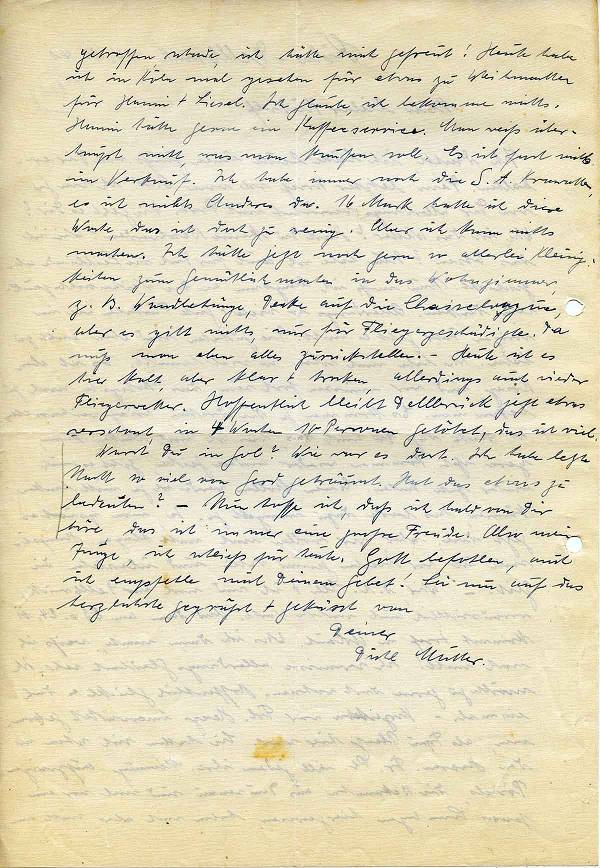 getroffen würde, ich hätte mich gefreut! Heute habe
ich in Köln mal gesehen für etwas zu Weihnachten
für Hanni + Liesel. Ich glaube, ich bekomme nichts.
Hanni hätte gerne ein Kaffeeservice. Man weiß über-
haupt nicht, was man kaufen soll. Es ist fast nichts
im Verkauf. Ich habe immer noch die S. A. Krawatten,
es ist nichts Anderes da. 16 Mark hatte ich diese
Woche, das ist doch zu wenig. Aber ich kann nichts
machen. Ich hätte jetzt noch gern so allerlei Kleinig-
keiten zum Gemütlichmachen in das Wohnzimmer,
z. B. Wandbehänge, Decke auf die Chaiselongue,
aber es gibt nichts, nur für Fliegergeschädigte. Da
muß man eben alles zurückstellen. - Heute ist es
hier kalt, aber klar + trocken, allerdings auch wieder
Fliegerwetter. Hoffentlich bleibt Dellbrück jetzt etwas
verschont, in 4 Wochen 10 Personen getötet, das ist viel.
Warst Du in Gol? Wie war es dort. Ich habe letzte
Nacht so viel von Gerd geträumt. Hat das etwas zu
bedeuten? - Nun hoffe ich, daß ich bald von Dir
höre, das ist immer eine große Freude. Also mein
Junge, ich schließe für heute. Gott befohlen, auch
ich empfehle mich Deinem Gebet! Sei nun auf das
herzlichste gegrüßt + geküsst von
Deiner
Dich l. Mutter.